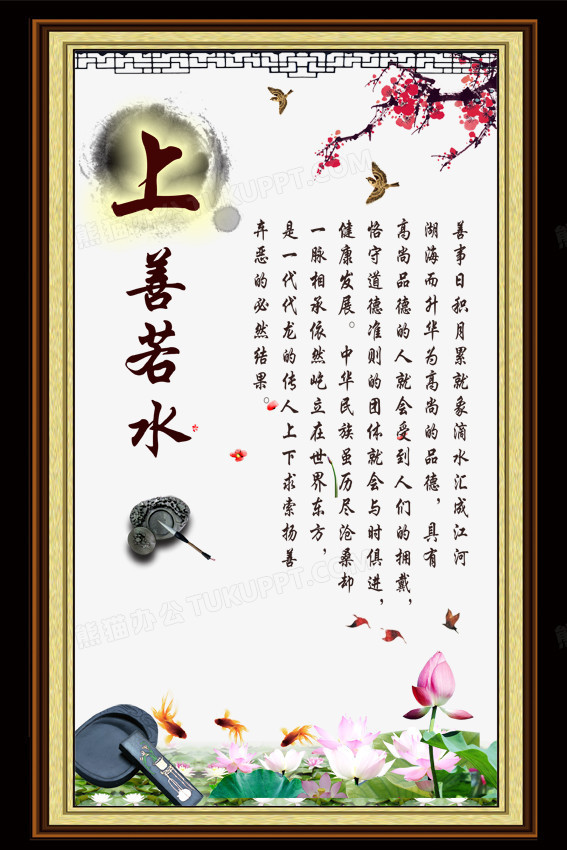 上善若水
善事日积月累就象滴水汇成江河
湖海而升华为高尚的品德，具有
高尚品德的人就会受到人们的拥戴，
恪守道德准则的团体就会与时俱进，
健康发展。中华民族虽历尽沧桑却
一脉相承依然屹立在世界东方，
是一代代龙的传人上下求索扬善
弃恶的必然结果。
熊猫办公 TUKUPPT.COM